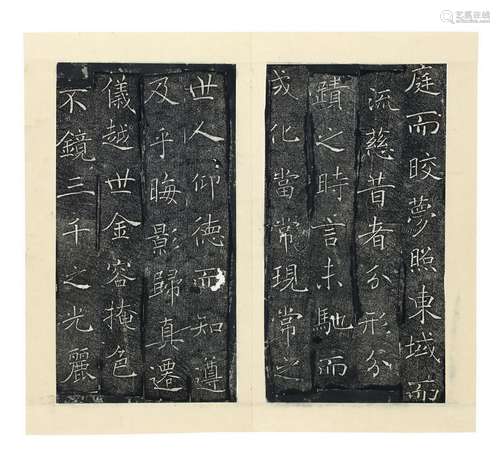 庭而皎夢照東域而
流慈昔者分形分
蹟之時言未馳而
成化當常現常之
世人仰德而知遵
及乎晦影歸真遷
儀越世金容掩色
不鏡三千之光麗
艺狐在线